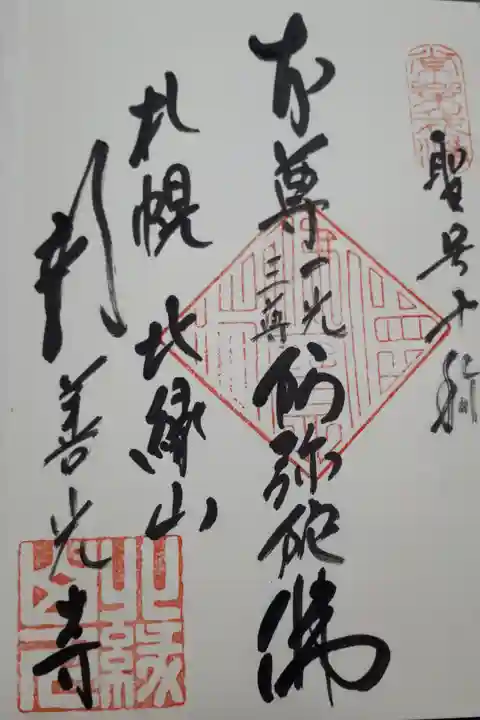 聖号十稱
本尊一光三尊阿弥陀佛
札幌 北縁山
新善光寺
北縁山